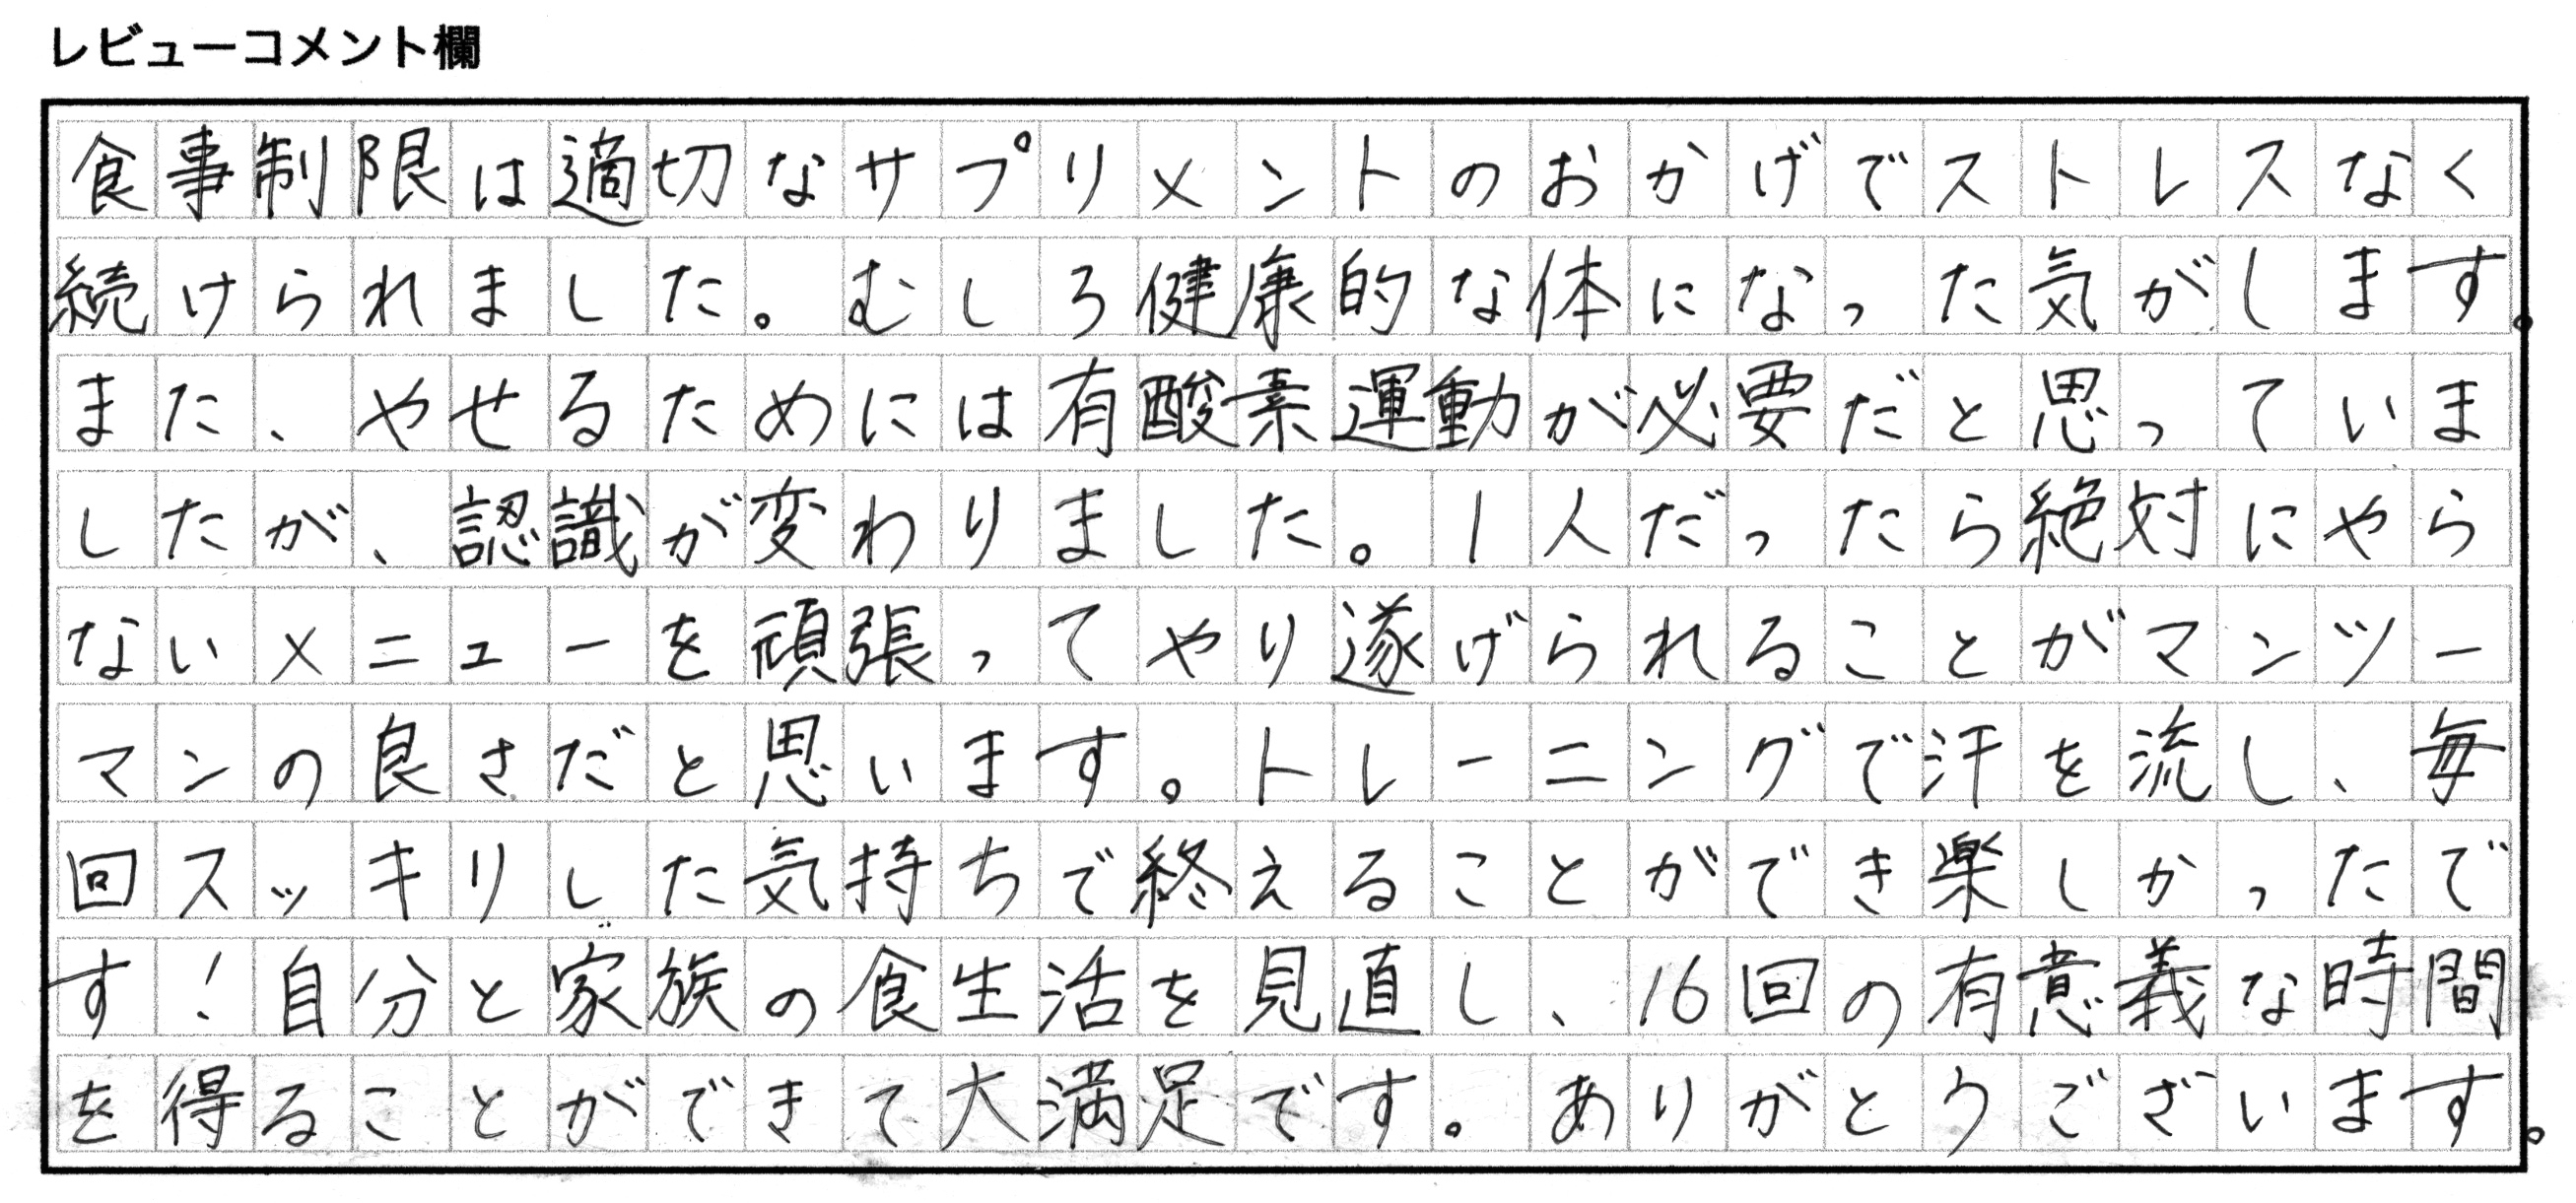 レビューコメント欄
食事制限は適切なサプリメントのおかげでストレスなく
続けられました。むしろ健康的な体になった気がします。
また、やせるためには有酸素運動が必要だと思っていま
したが、認識が変わりました。1人だったら絶対にやら
ないメニューを頑張ってやり遂げられることがマンツー
マンの良さだと思います。トレーニングで汗を流し、毎
回スッキリした気持ちで終えることができ楽しかったで
す!自分と家族の食生活を見直し、16回の有意義な時間
を得ることができて大満足です。ありがとうございます。